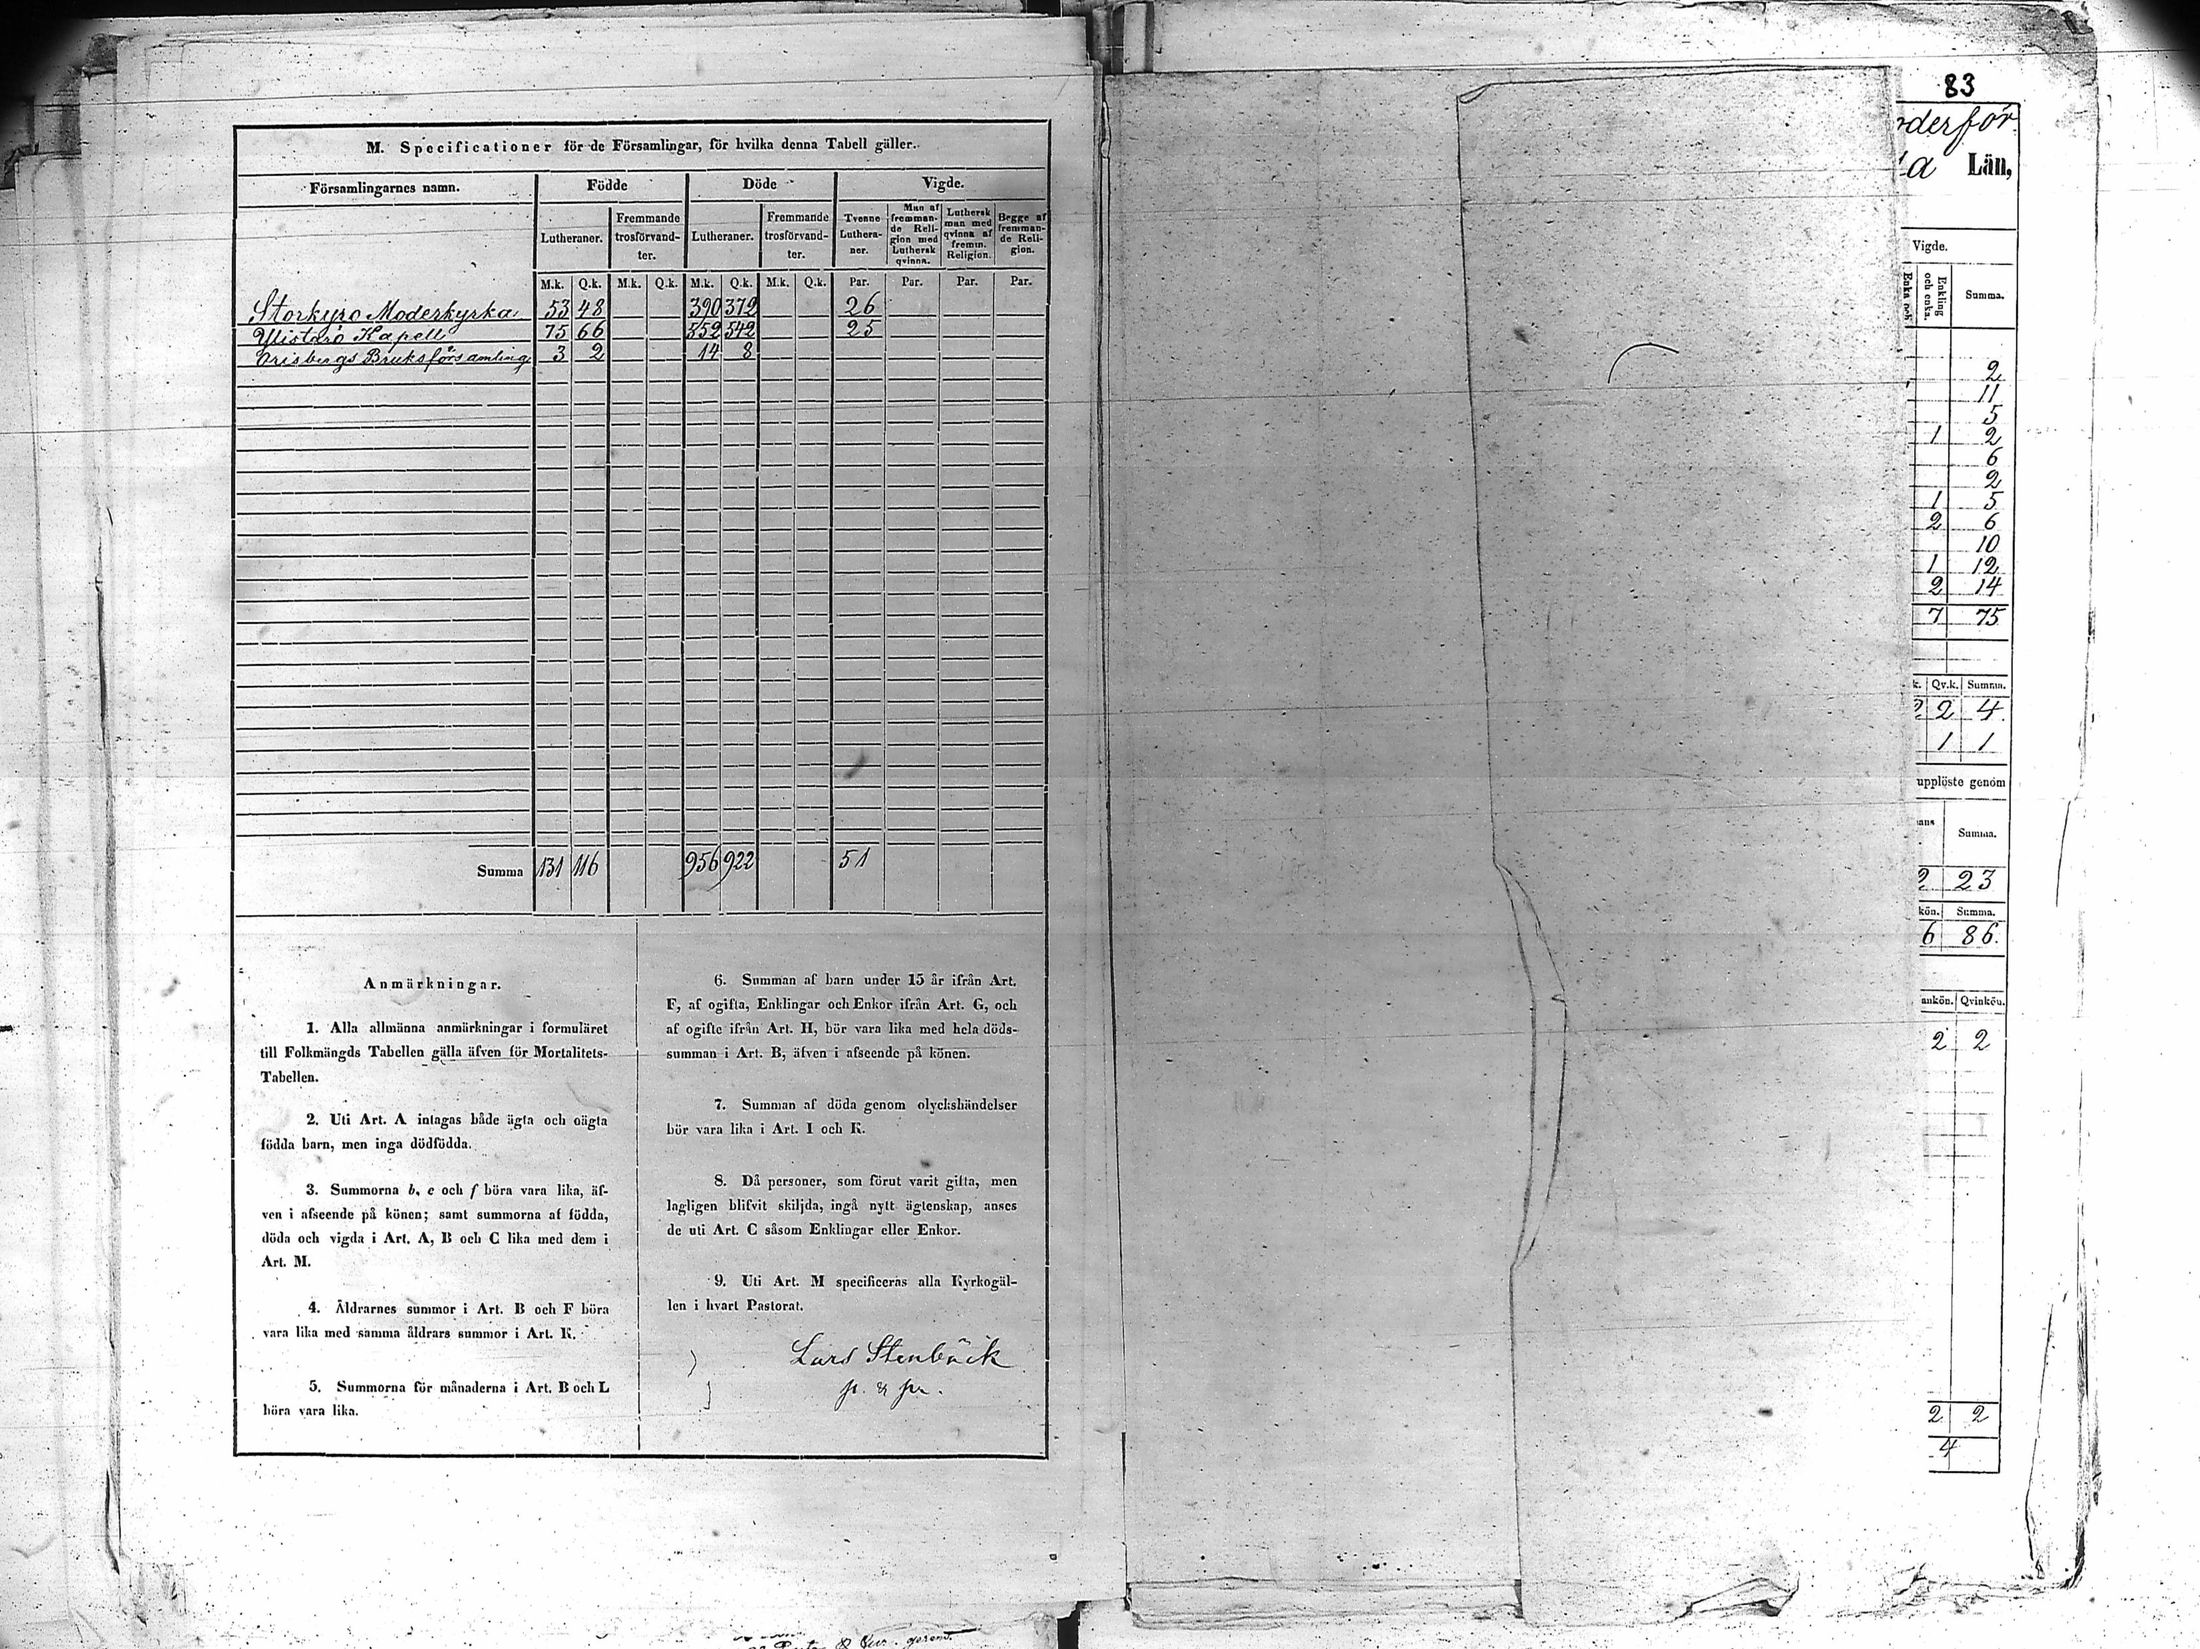 M. Specificationer för de Församlingar, för hvilka denna Tabell gäller.
Församlingarnes namn. Födde Döde Vigde.
Lutheraner. Fremmande trosförvandter. Lutheraner. Fremmande trosförvandter. Tvenne Lutheraner. Man af fremmande Religion med Luthersk qvinna. Luthersk man med qvinna af fremm. Religion. Begge af fremmande Religion.
M.k. Q.k. M.k. Q.k. M.k. Q.k. M.k. Q.k. Par. Par. Par. Par.
Storkyro Moderkyrka 53 48 390 372 26
Ylistaro Kapell 75 66 552 542 25
Orisbergs Bruksförsamling 3 2 14 8
Summa 131 116 956 922 51
Anmärkningar.
1. Alla allmänna anmärkningar i formuläret
till Folkmängds Tabellen gälla äfven för Mortalitets-
Tabellen.
2. Uti Art. A intagas både ägta och oägta
födda barn, men inga dödfödda.
3. Summorna b, e och f böra vara lika, äf-
ven i afseende på könen; samt summorna af födda,
döda och vigda i Art. A, B och C lika med dem i
Art. M.
4. Åldrarnes summor i Art. B och F böra
vara lika med samma åldrars summor i Art. K.
5. Summorna för månaderna i Art. B och L
böra vara lika.
6. Summan af barn under 15 år ifrån Art.
F, af ogifta, Enklingar och Enkor ifrån Art. G, och
af ogifte ifrån Art. H, bör vara lika med hela döds-
summan i Art. B, äfven i afseende på könen.
7. Summan af döda genom olyckshändelser
bör vara lika i Art. I och K.
8. Då personer, som förut varit gifta, men
lagligen blifvit skiljda, ingå nytt ägtenskap, anses
de uti Art. C såsom Enklingar eller Enkor.
9. Uti Art. M specificeras alla Kyrkogäl-
len i hvart Pastorat.
Lars Stenbäck
83
derför
a Län,
Vigde.
Enka och
Enkling och enka.
Summa.
2
11
5
1 2
6
2
1 5
2 6
10
1 12
2 14
7 75
k. Qv.k. Summa.
2 2 4
1 1
upplöste genom
ans Summa.
2 23
kön. Summa.
6 86.
ankön. Qvinkön.
2 2
2 2
4